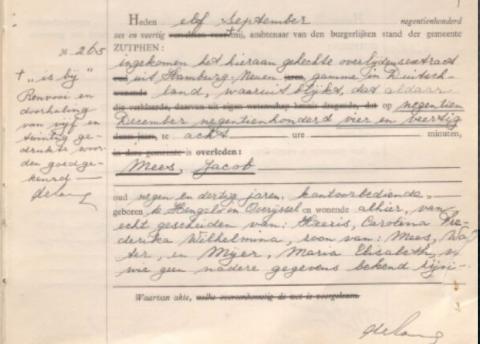 Heden elf September negentienhonderd
zes en veertig verscheen voor mij, ambtenaar van den burgerlijken stand der gemeente
ZUTPHEN:
No 265
ingekomen het hieraan gehechte overlijdensextract
uit Hamburg-Neuengamme in Duitsch-
land, waaruit blijkt, dat aldaar
die verklaarde, daarvan uit eigen wetenschap kennis dragende, dat op negentien
December negentienhonderd vier en veertig
dezes jaars, te acht ure minuten,
in deze gemeente is overleden:
Mees, Jacob
oud negen en dertig jaren, kantoorbediende,
geboren te Hengelo in Overijssel en wonende alhier, van
echt gescheiden van: Carolina
derika Wilhelmina, zoon van: Mees, Wa
ter, en Meijer, Maria Elisabeth, van
wie geen nadere gegevens bekend zijn.
Waarvan akte, welke overeenkomstig de wet is voorgelezen.
"is bij"
Renvooi en
doorhaling
van vijf en
twintig ge-
drukte woor-
den goedge-
keurd